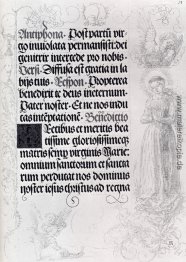 Antiphona. Post partū vir-
go inviolata permansisti: dei
genitrix intercede pro nobis.
Versi. Diffusa est gratia in la-
bijs tuis. Respon. Propterea
benedixit te deus ineternum.
Pater noster. Et ne nos indu
cas intēptationē. Benedictio
Precibus et meritis bea
tissime gloriosissimeqʒ
matris semp virginis Marie:
omnium sanctorum et sancta
rum perducat nos dominus
noster iesus christus ad regna